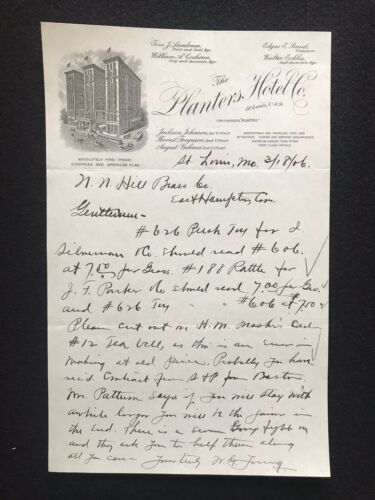 Tom J. Landrum,
William A. Cochran,
Edgar E. Rand,
President
The
Planters Hotel Co.
St. Louis, U.S.A.
CABLE ADDRESS, "PLANTERS"
Jackson Johnson, 1st V. Prest.
ABSOLUTELY FIRE-PROOF.
EUROPEAN AND AMERICAN PLAN.
St. Louis, Mo. 2/18/06.
N. N. Hill Brass Co.
East Hampton, Conn
Gentlemen—
#626 Push Toy for I
Silverman & Co. should read #606.
at 7.00 per Gross. #188 Rattle for
J. F. Parker & Co should read 7.00 per Gro.
and #626 Toy " " #606 at 7.50
Please cut out on H. M.
#12 Tea bell, as this is an error in
making at old price. Probably you have
rec'd. Contract from S & P from Boston.
Mr. Patterson says if you will stay with
awhile longer you will be the gainer in
the End. There is a severe fight on
and they ask you to help them along
all you can— Yours truly W. G.